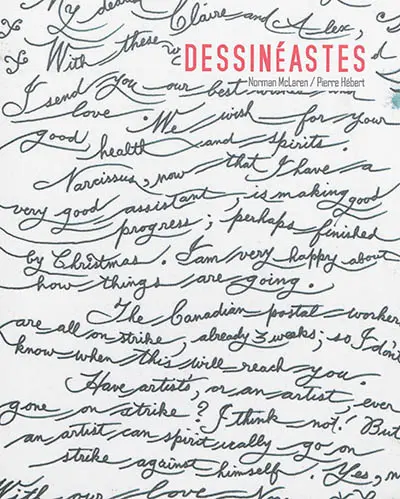 My dear Claire and Alex,
With these
DESSINÉASTES
Norman McLaren / Pierre Hébert
I send you our best wishes and
love. We wish for your
good health and spirits.
Narcissus, now that I have a
very good assistant, is making good
progress; perhaps finished
by Christmas. I am very happy about
how things are going.
The Canadian postal workers
are all on strike, already 3 weeks; so I don't
know when this will reach you.
Have artists, or an artist, ever
gone on strike? I think not. But
an artist can spiritually go on
strike against himself. Yes,
With our love